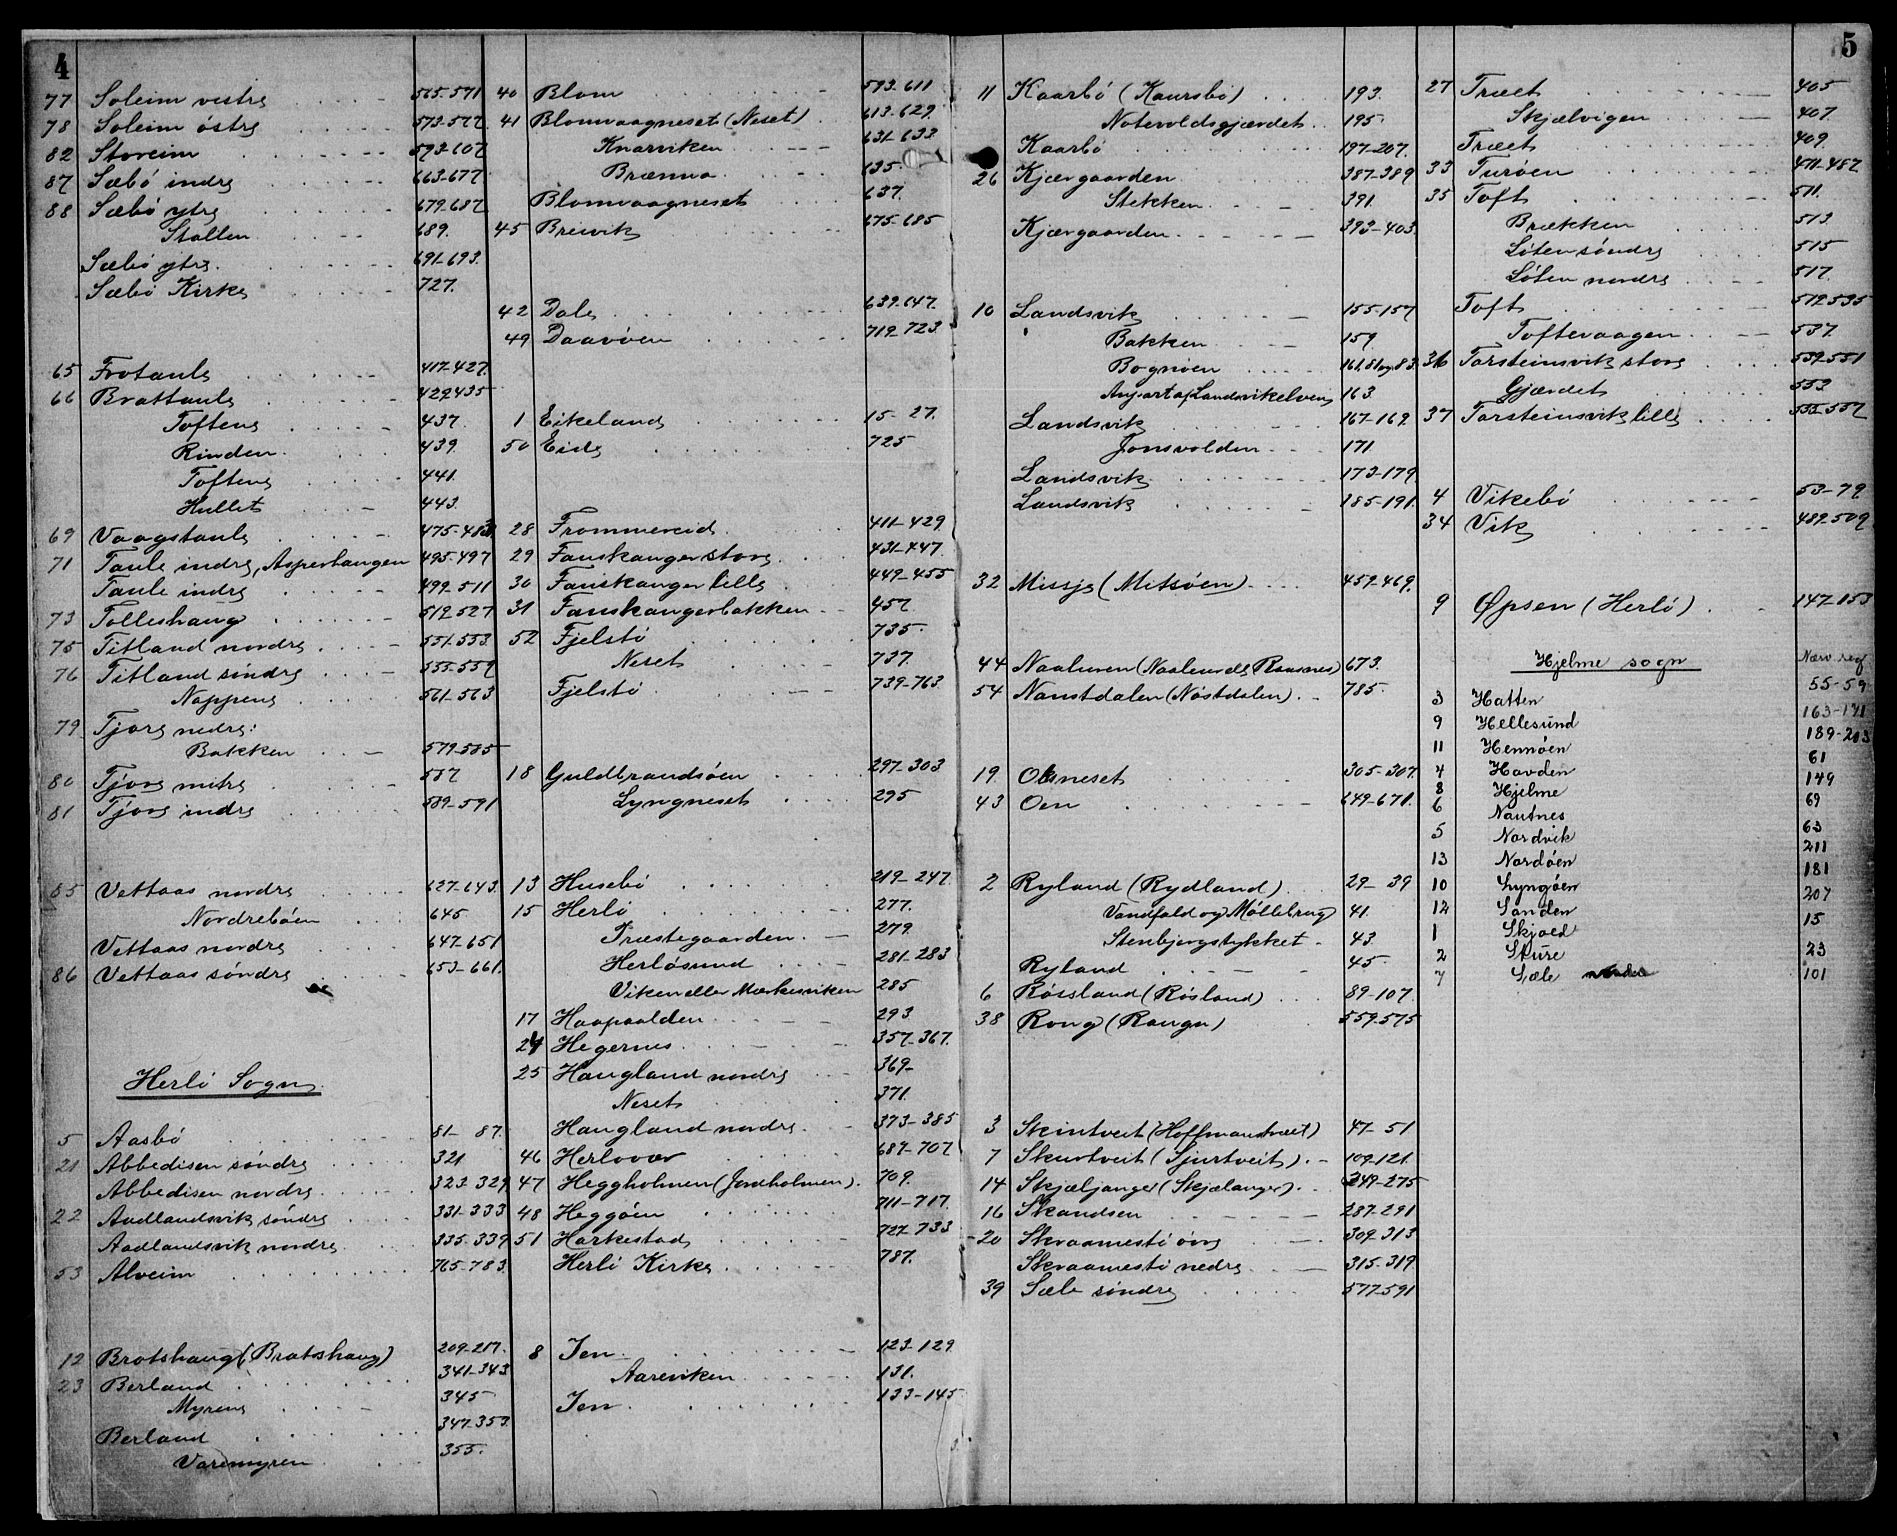 4
77 Soleim vestre 565-571
78 Soleim östre 573-577
82 Storeim 593-607
87 Sæbö indre 663-677
88 Sæbö ytre 679-687
Stallen 689.
Sæbö ytre 691-693.
Sæbö Kirke 727.
65 Frotaule 417-427
66 Brattaule 429-435
Toftene 437.
Rinden 439.
Toftene 441.
Hullet 443.
69 Vaagstaule 475-483
71 Taule indre, Asperhaugen 495-497
Taule indre 499-511
73 Tolleshaug 519-527
75 Titland nordre 551-553
76 Titland söndre 555-559
Nappene 561-563
79 Tjore nedre:
Bakken 579-585
80 Tjore mitre 587
81 Tjore indre 589-591
85 Vettaas nordre 627-643.
Nordreböen 645
Vettaas nordre 647-651
86 Vettaas söndre 653-661.
Herlö Sogn.
5 Aasbö 81- 87.
21 Abbedisen söndre 321
Abbedisen nordre 323-329
22 Aadlandsvik söndre 331-333
Aadlandsvik nordre 335-339
53 Alveim 765-783.
12 Brotshaug (Bratshaug) 209-217.
23 Berland 341-343
Myrene 345
Berland 347-353.
Varemyren 355.
40 Blom 593-611
41 Blomvaagneset (Neset) 613-629.
Knarviken 631-633
Brænna 135.
Blomvaagneset 637.
45 Breivik 675-685
42 Dale 639-647.
49 Daavöen 719-723.
1 Eikeland 15- 27.
50 Eide 725
28 Frommereid 411-429.
29 Fauskanger store 431-447.
30 Fauskanger lille 449-455
31 Fauskangerbakken 457.
52 Fjelstö 735.
Neset 737.
Fjelstö 739-763.
18 Guldbrandsöen 297-303
Lyngneset 295
13 Husebö 219-247.
15 Herlö 277.
Præstegaarden 279.
Herlösund 281-283
Viken eller Mærkesviken 285
17 Haapaalden 293
24 Hegernes 357-367.
25 Haugland nordre 369-
Neset 371.
Haugland nordre 373-385
46 Herlovær 687-707
47 Heggholmen (Jordholmen) 709.
48 Heggöen 711-717.
51 Harkestad 727-733
Herlö Kirke 787.
8 Ien 123-129
Aareviken 131.
Ien 133-145
5
11 Kaarbö (Kaursbö) 193.
Notevoldsgjærdet 195
Kaarbö 197-207.
26 Kjærgaarden 387-389
Stekken 391
Kjærgaarden 393-403.
10 Landsvik 155-157
Bakken 159
Bognöen 161.81og83.
Anpart af Landsvikelven 163
Landsvik 167-169.
Jonsvolden 171
Landsvik 173-179.
Landsvik 185-191.
32 Missje (Mitsöen) 459-469.
44 Naaluren (Naalen de Raasnes) 673.
54 Naustdalen (Nöstdalen) 785.
19. Oksneset 305-307.
43 Oen 649-671.
2 Ryland (Rydland) 29- 39
Vandfald og Möllebrug 41.
Stenbjergstykket 43
Ryland 45
6 Rössland (Rösland) 89-107.
38 Rong (Raugn) 559-575
3 Skintveit (Hoffmanstveit) 47- 51
7 Skurtveit (Sjurtveit) 109-121.
14 Skjæljanger (Skjælanger) 249-275
16 Skandsen 287-291
20 Skraamestö övre 309-313
Skraamestö nedre 315-319.
39 Sæle söndre 577-591
27 Træet 405
Skjælvigen 407.
Træet 409.
33 Turöen 471-487
35 Toft 511.
Brækken 513
Löten söndre 515
Löten nordre 517.
Toft 519-535
Toftevaagen 537.
36 Torsteinsvik store 539-551
Gjærdet 553
37 Torsteinsvik lille 555-557
4 Vikebö 53-79
34 Vik 489-509
9 Øpsen (Herlö) 147-153
Hjelme sogn Nærv. reg
3 Hatten 55-59
9 Hellesund 163-171
11 Hennöen 189-203
4 Havden 61
8 Hjelme 149
6 Nautnes 69
5 Nordvik 63
13 Nordöen 211
10 Lyngöen 181
12 Sanden 207
1 Skjold 15
2 Sture 23
7 Sæle nordre 101